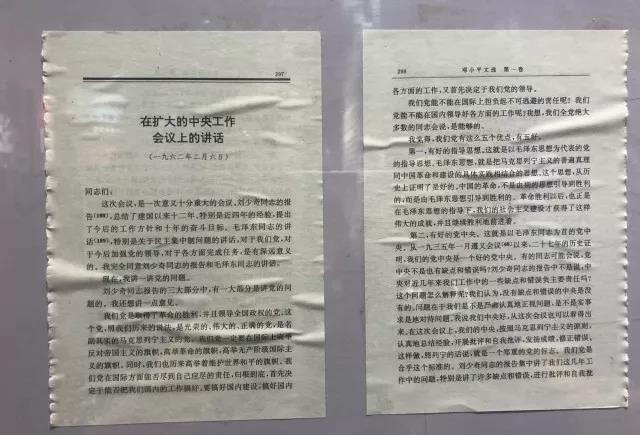 297
在扩大的中央工作
会议上的讲话
(一九六二年二月六日)
同志们:
这次会议,是一次意义十分重大的会议。刘少奇同志的报
告〔188〕,总结了建国以来十二年,特别是近四年的经验,提出
了今后的工作方针和十年的奋斗目标。毛泽东同志的讲
话〔189〕,特别是关于民主集中制问题的讲话,对于我们党,对
于今后加强党的领导,对于各方面完成任务,是有深远意义
的。我完全同意刘少奇同志的报告和毛泽东同志的讲话。
现在,我讲一讲党的问题。
刘少奇同志报告的三大部分中,有一大部分是讲党的问
题的。我还想讲一点意见。
我们党是取得了革命的胜利、并且领导全国政权的党。这
个党,照我们历来的说法,是光荣的、伟大的、正确的党,是名
副其实的马克思列宁主义的党。我们党一定要在国际上高举
反对帝国主义的旗帜,高举革命的旗帜,高举无产阶级国际主
义的旗帜。同时,我们也历来高举着维护世界和平的旗帜。我
们党在国际方面能否尽到自己应尽的责任,归根到底,首先决
定于能否把我们国内的工作搞好。要搞好国内建设,搞好国内
298 邓小平文选 第一卷
各方面的工作,又首先决定于我们党的领导。
我们党能不能在国际上担负起不可逃避的责任呢?我们
党能不能在国内领导好各方面的工作呢?我想,我们全党绝大
多数的同志会说,是能够的。
我觉得,我们党有这么五个优点,有五好。
第一,有好的指导思想。这就是以毛泽东思想为代表的党
的指导思想。毛泽东思想,就是把马克思列宁主义的普遍真理
同中国革命和建设的具体实践相结合的思想。这个思想,从历
史上证明了是好的。中国的革命,不是由别的思想引导到胜利
的,而是由毛泽东思想引导到胜利的。革命胜利以后,也正是
在毛泽东思想的指导下,我们的社会主义建设才获得了这样
伟大的成就,并且继续胜利地前进着。
第二,有好的党中央。这就是以毛泽东同志为首的党中
央。从一九三五年一月遵义会议〔48〕以来,二十七年的历史证
明,我们的党中央是一个好的党中央。有的同志可能会说,党
中央不是也有缺点和错误吗?刘少奇同志的报告中不是说,中
央对近几年来我们工作中的一些缺点和错误负主要责任吗?
这个问题怎么解释呢?我们认为,没有缺点和错误的中央是没
有的。问题在于我们是不是严肃认真地正视问题,是不是实事
求是地对待问题。我说我们中央好,从这次会议也可以看得出
来。在这次会议上,我们的中央,按照马克思列宁主义的原则,
认真地总结经验,开展批评和自我批评,发扬成绩,修正错误。
这样做,照列宁的话说,就是一个郑重的党的标志。我们党是
合乎这个标准的。刘少奇同志的报告集中讲了我们这几年工
作中的问题,特别是讲了许多缺点和错误,进行批评和自我批